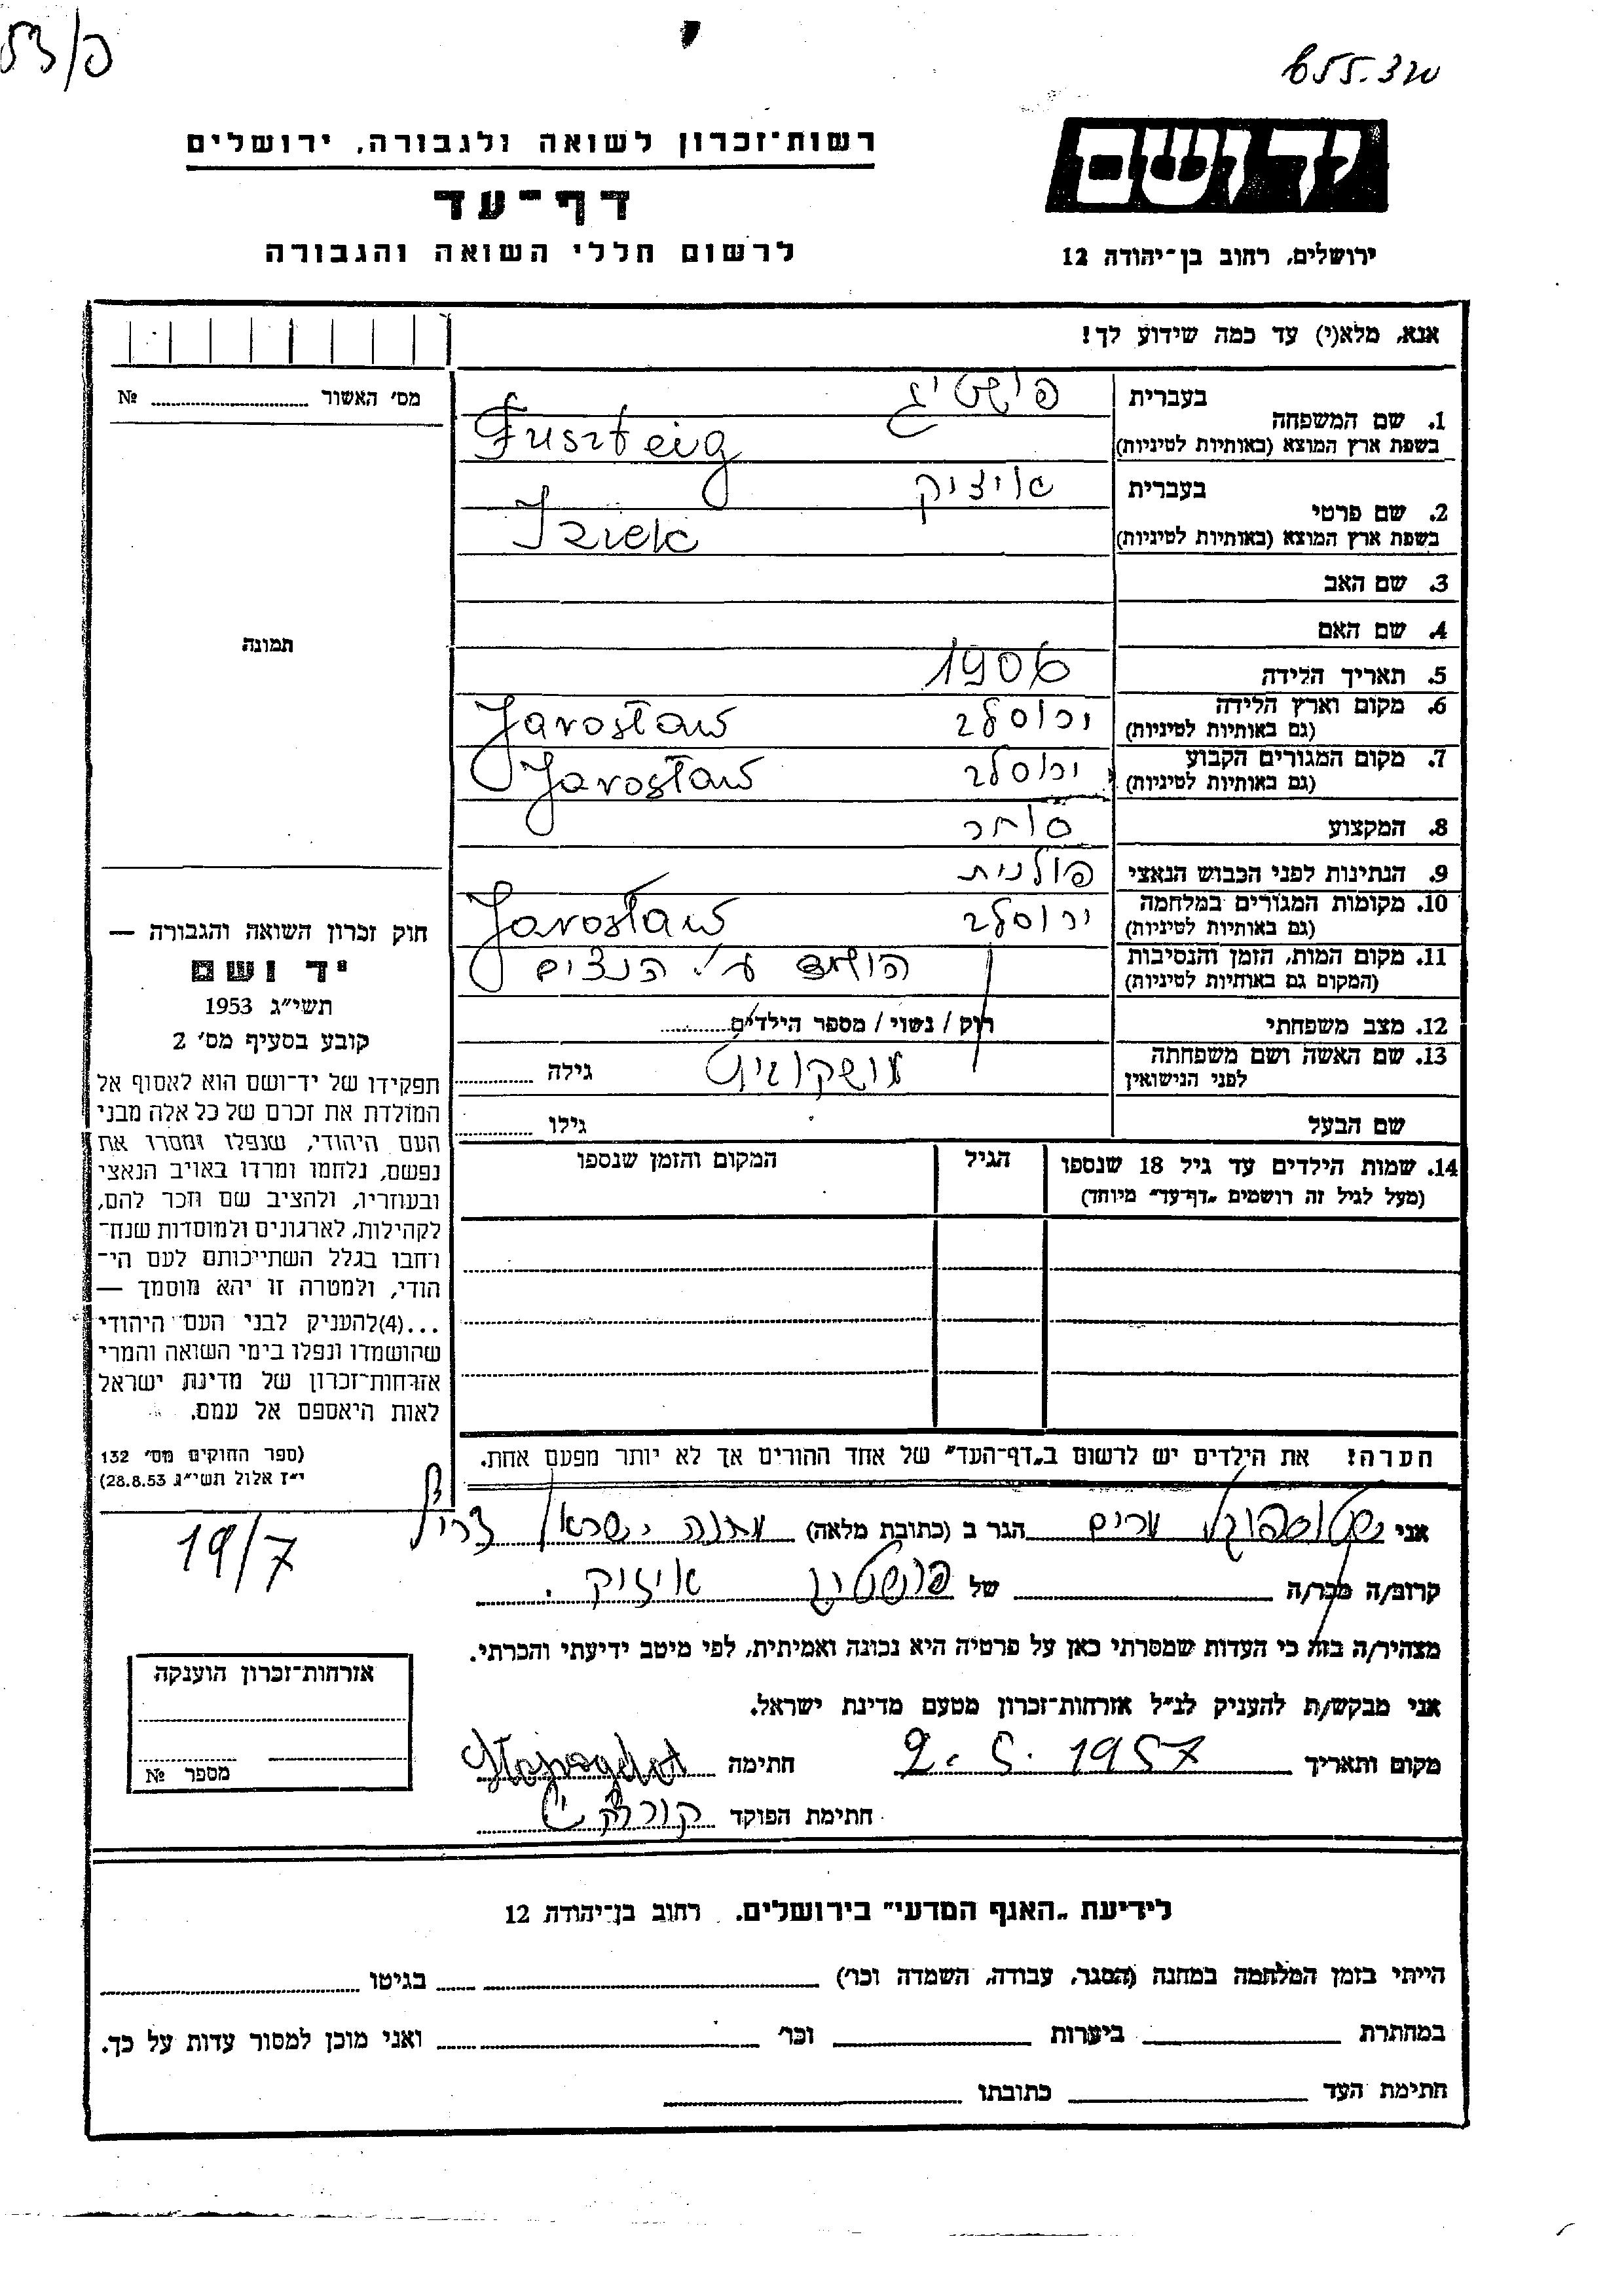 53/פ
655.320
רשות־זכרון לשואה ולגבורה, ירושלים
יד ושם
דף־עד
לרשום חללי השואה והגבורה
ירושלים, רחוב בן־יהודה 12
אנא, מלא(י) עד כמה שידוע לך!
מס' האשור № 
בעברית
1. שם המשפחה
בשפת ארץ המוצא (באותיות לטיניות)
פושטיג
Fuszteig
בעברית
2. שם פרטי
בשפת ארץ המוצא (באותיות לטיניות)
איציק
3. שם האב
4. שם האם
תמונה
5. תאריך הלידה 1906
6. מקום וארץ הלידה
(גם באותיות לטיניות)
ירוסלב Jarosław
7. מקום המגורים הקבוע
(גם באותיות לטיניות)
ירוסלב Jarosław
8. המקצוע סוחר
9. הנתינות לפני הכבוש הנאצי פולנית
10. מקומות המגורים במלחמה
(גם באותיות לטיניות)
ירוסלב Jarosław
11. מקום המות, הזמן והנסיבות
(המקום גם באותיות לטיניות)
הושמד ע"י הנצים
12. מצב משפחתי רווק / נשוי / מספר הילדים
13. שם האשה ושם משפחתה
לפני הנישואין
גילה
שם הבעל גילו
14. שמות הילדים עד גיל 18 שנספו
(מעל לגיל זה רושמים „דף־עד" מיוחד)
הגיל
המקום והזמן שנספו
חוק זכרון השואה והגבורה —
יד ושם
תשי"ג 1953
קובע בסעיף מס' 2
תפקידו של יד־ושם הוא לאסוף אל
המולדת את זכרם של כל אלה מבני
העם היהודי, שנפלו ומסרו את
נפשם, נלחמו ומרדו באויב הנאצי
ובעוזריו, ולהציב שם וזכר להם,
לקהילות, לארגונים ולמוסדות שנח־
רחבו בגלל השתייכותם לעם הי־
הודי, ולמטרה זו יהא מוסמך —
...(4)להעניק לבני העם היהודי
שהושמדו ונפלו בימי השואה והמרי
אזרחות־זכרון של מדינת ישראל
לאות היאספם אל עמם.
(ספר החוקים מס' 132
י"ז אלול תשי"ג 28.8.53)
הערה! את הילדים יש לרשום ב„דף־העד" של אחד ההורים אך לא יותר מפעם אחת.
19/7
אני מרים הגר ב (כתובת מלאה) ישראל
קרוב/ה מכר/ה של פושטיג איזיק
מצהיר/ה בזה כי העדות שמסרתי כאן על פרטיה היא נכונה ואמיתית, לפי מיטב ידיעתי והכרתי.
אני מבקש/ת להעניק לנ"ל אזרחות־זכרון מטעם מדינת ישראל.
מקום ותאריך 2.5.1957 חתימה
חתימת הפוקד
אזרחות־זכרון הוענקה
מספר №
לידיעת „האגף המדעי" בירושלים. רחוב בן־יהודה 12
הייתי בזמן המלחמה במחנה (הסגר, עבודה, השמדה וכו') בגיטו
במחתרת ביערות וכו' ואני מוכן למסור עדות על כך.
חתימת העד כתובתו